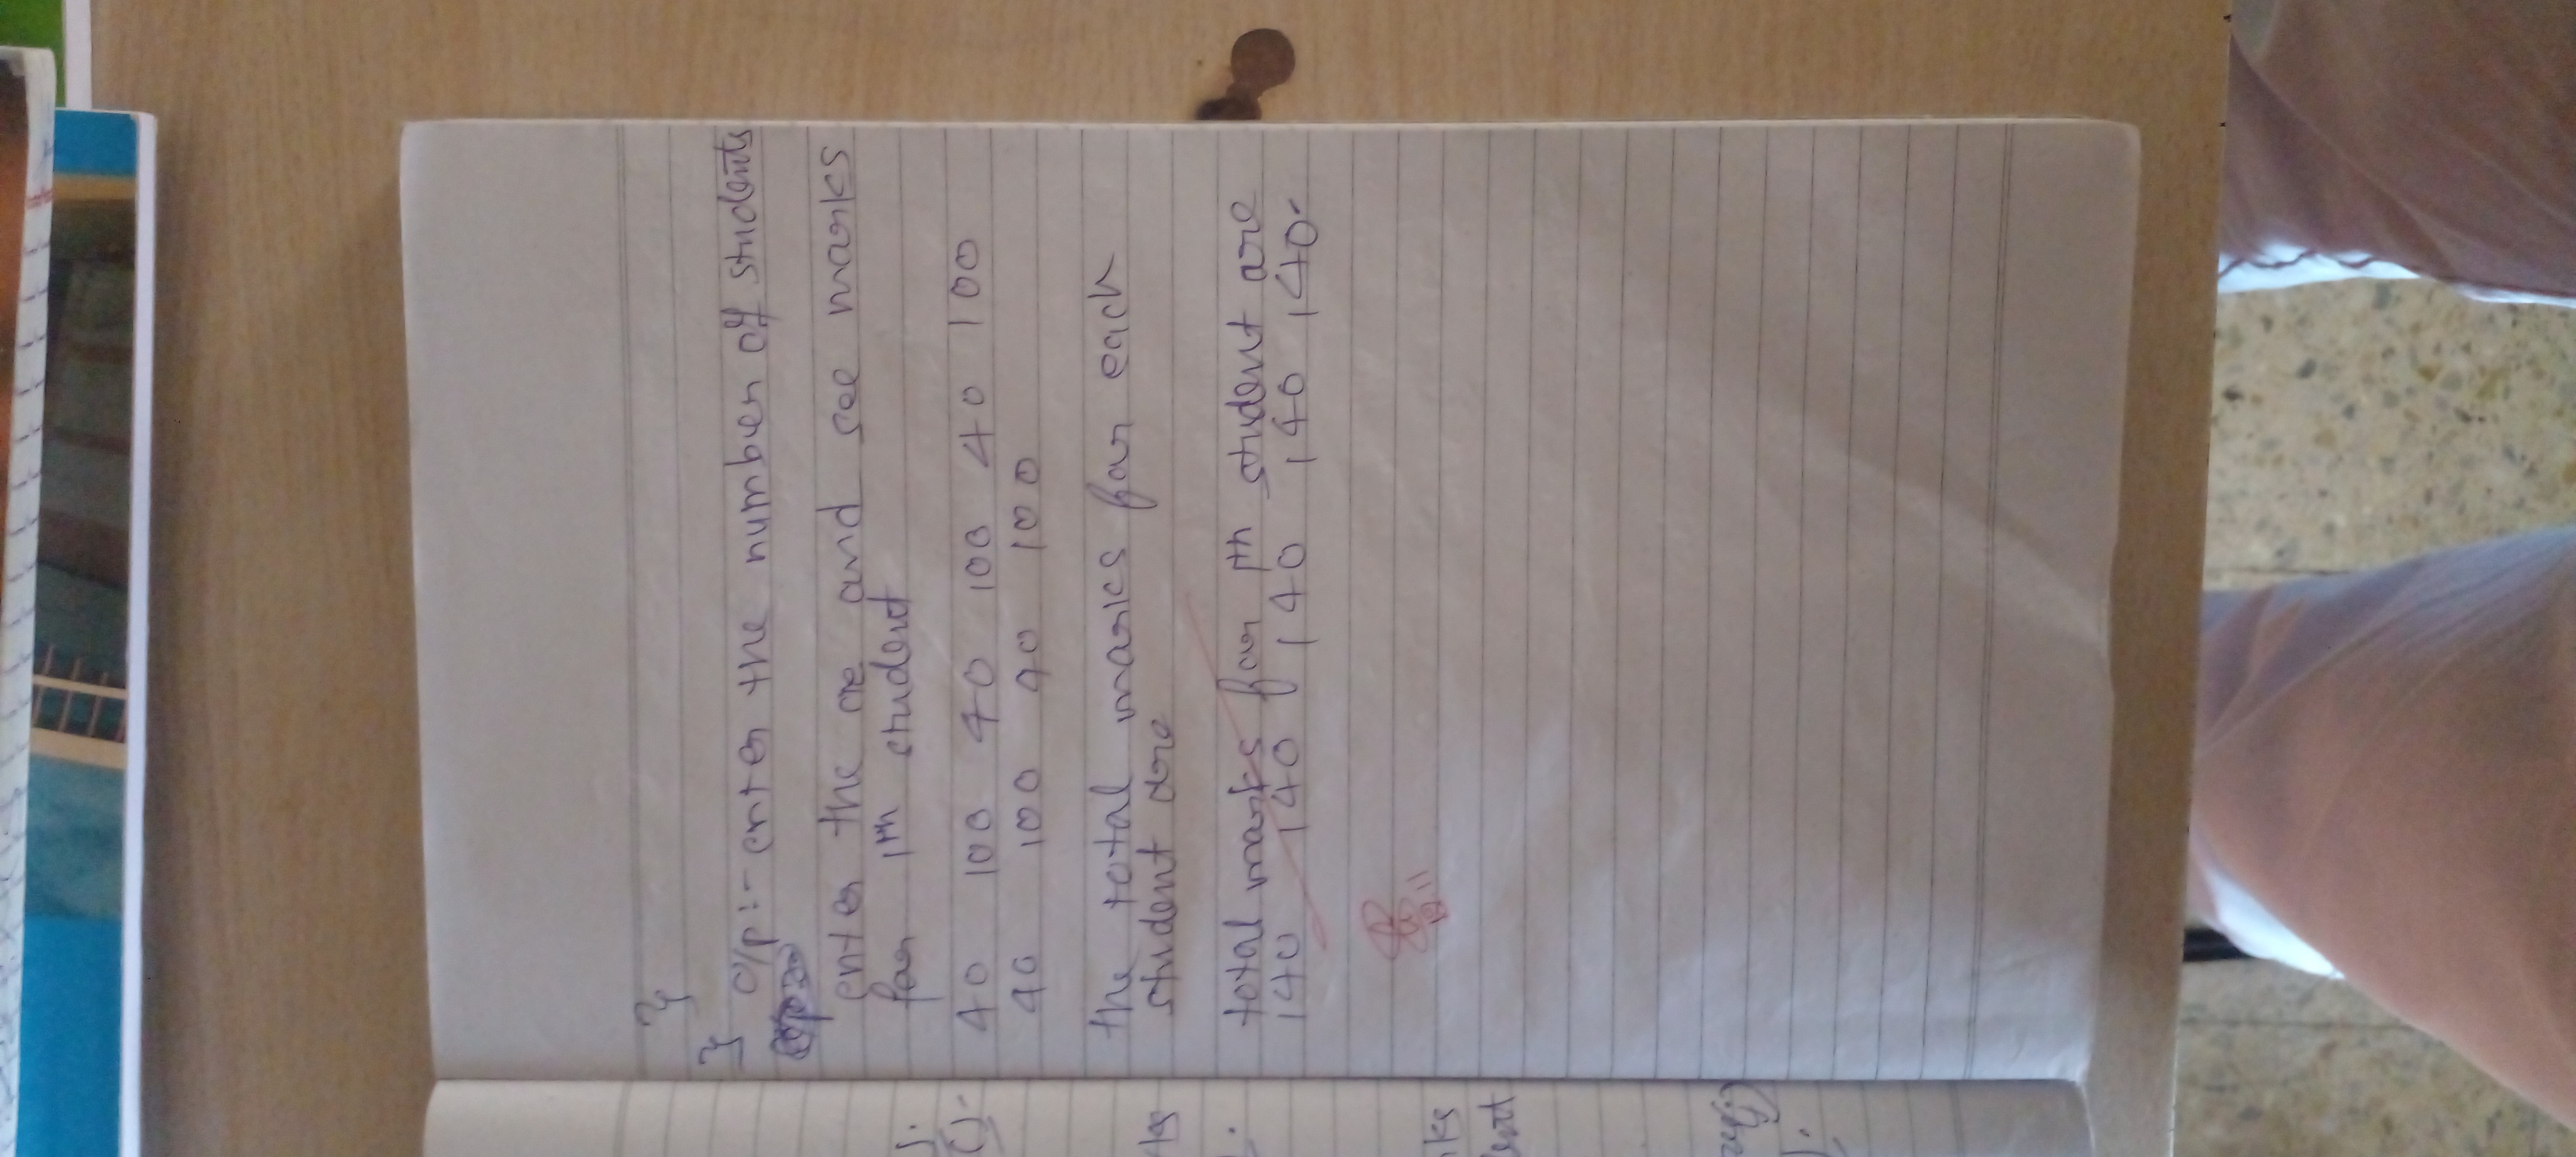 }
} o/p:- enter the number of students
enter the cie and see marks
for 1th student
40 100 40 100 40 100
40 100 40 100
the total marks for each
student are
total marks for 1th student are
140 140 140 140 140.